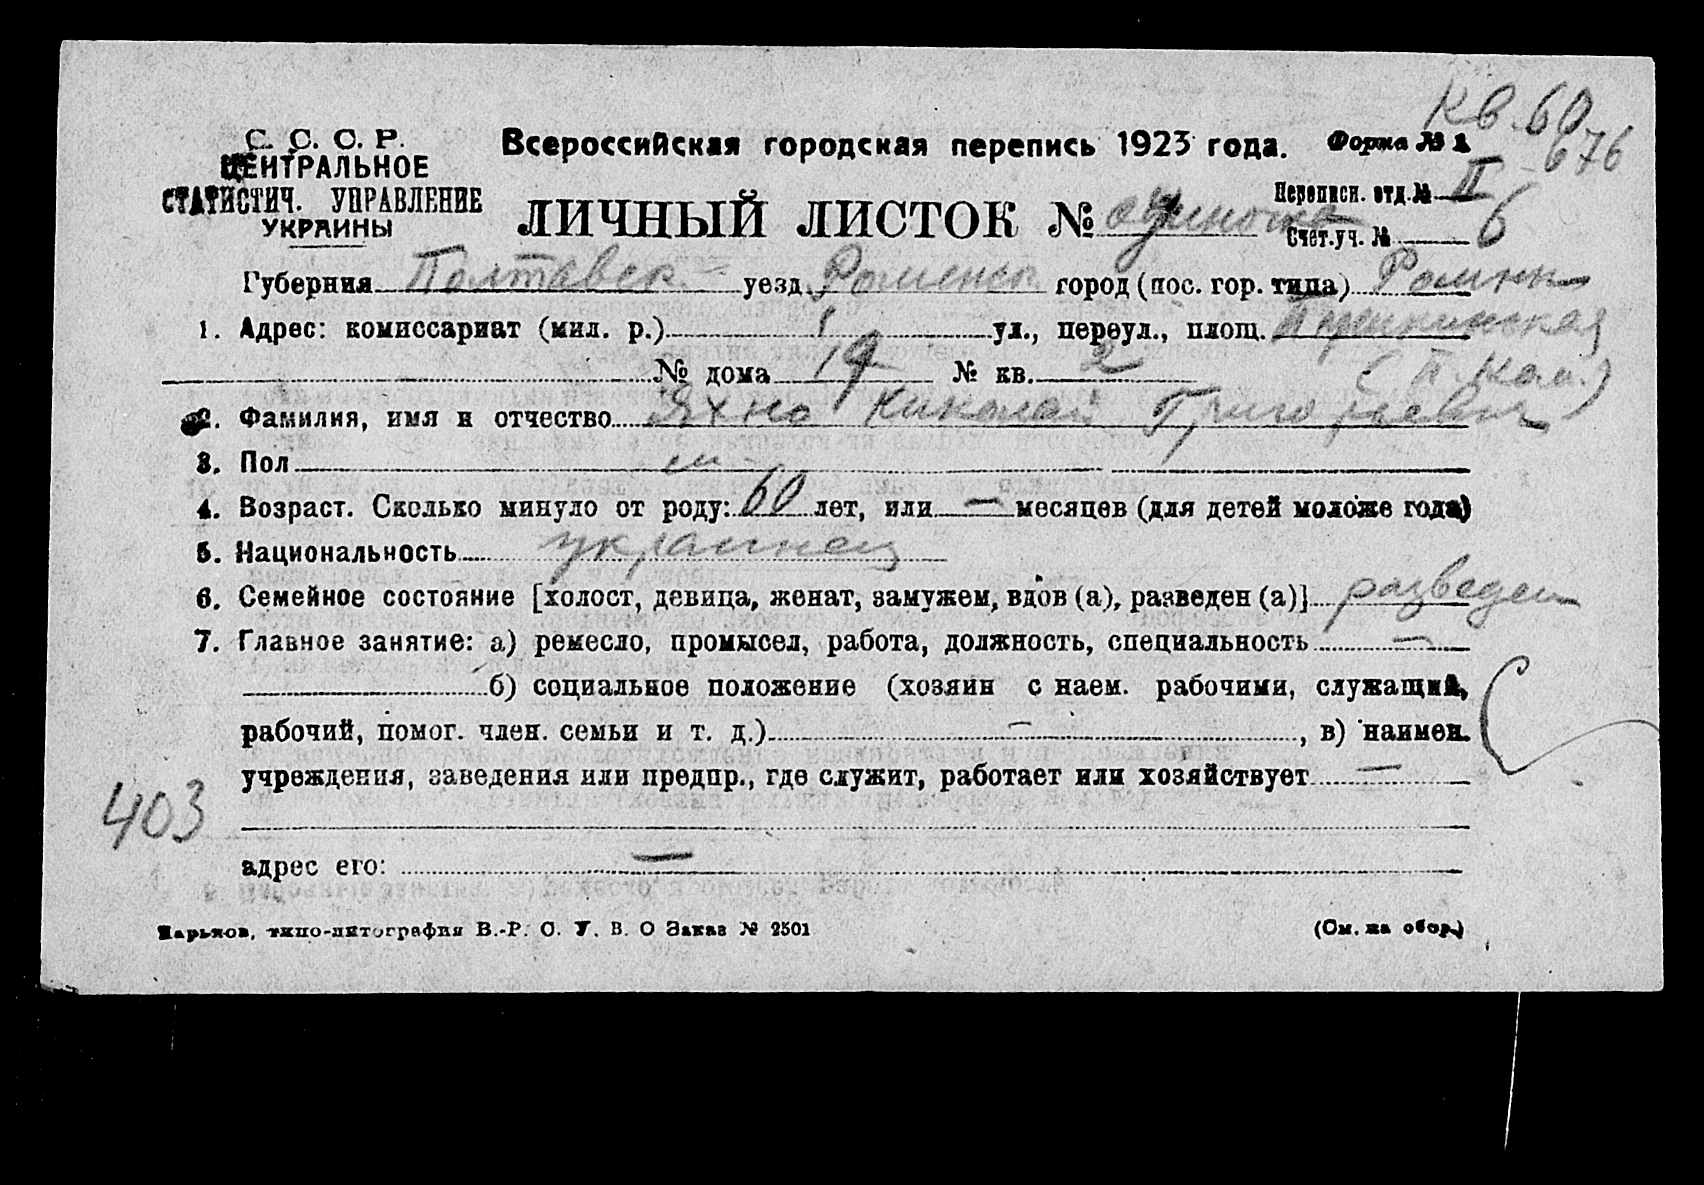 Кв. 60
С. С. С. Р.
ЦЕНТРАЛЬНОЕ
СТАТИСТИЧ. УПРАВЛЕНИЕ
УКРАИНЫ
Всероссийская городская перепись 1923 года.
Форма № 1
676
Переписн. отд. № II
ЛИЧНЫЙ ЛИСТОК № одиночка
Счет. уч. № 6
Губерния Полтавск. уезд Роменск город (пос. гор. типа) Ромны
1. Адрес: комиссариат (мил. р.) 1 ул., переул., площ. Пушкинская
№ дома 19 № кв. 2
2. Фамилия, имя и отчество Яхно Николай Григорьевич
3. Пол м
4. Возраст. Сколько минуло от роду: 60 лет, или — месяцев (для детей моложе года)
5. Национальность украинец
6. Семейное состояние [холост, девица, женат, замужем, вдов (а), разведен (а)] разведен
7. Главное занятие: а) ремесло, промысел, работа, должность, специальность —
б) социальное положение (хозяин с наем. рабочими, служащий,
рабочий, помог. член. семьи и т. д.) — , в) наимен.
учреждения, заведения или предпр., где служит, работает или хозяйствует —
403
адрес его: —
Харьков, типо-литография В.-Р. С. У. В. О Заказ № 2501
(См. на обор.)